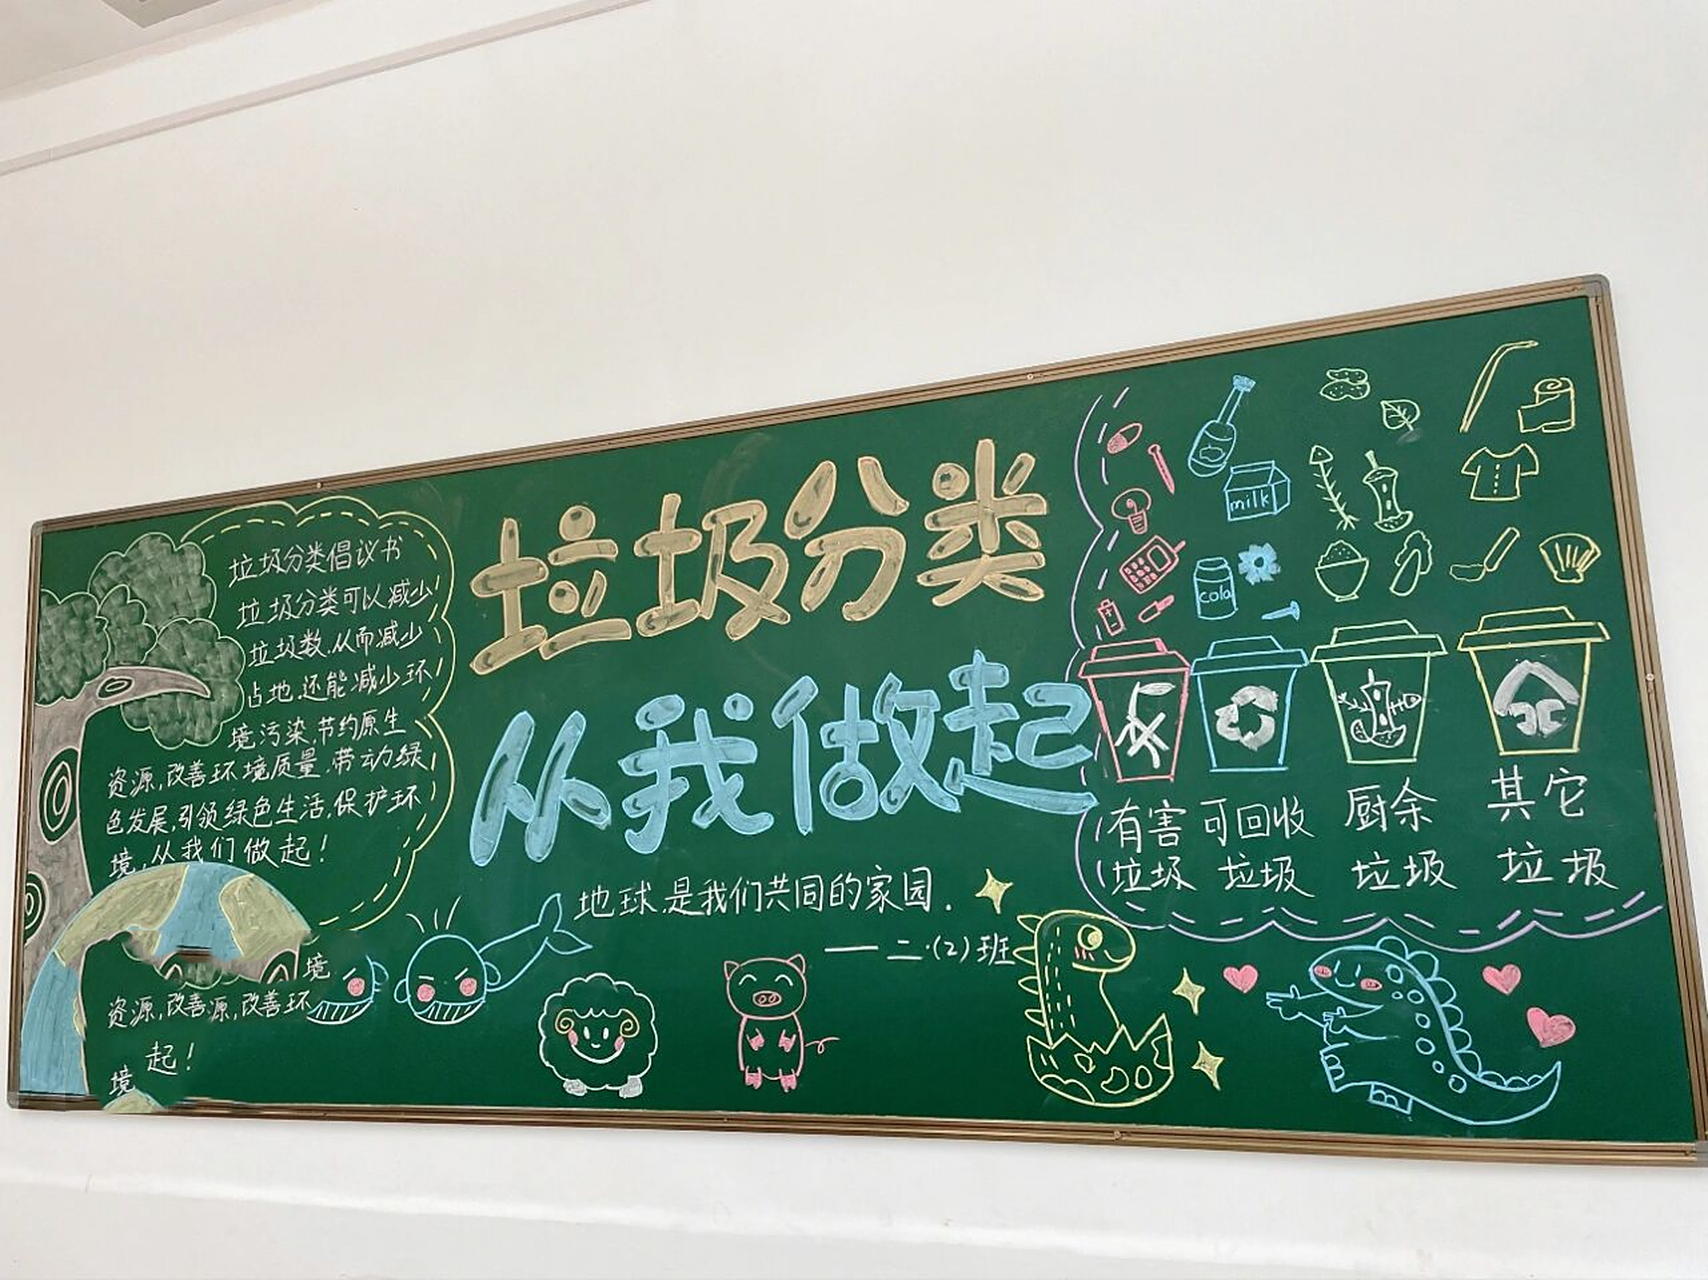 垃圾分类倡议书
垃圾分类可以减少
垃圾数,从而减少
占地,还能减少环
境污染,节约原生
资源,改善环境质量,带动绿
色发展,引领绿色生活,保护环
境,从我们做起!
境
资源,改善源,改善环
起!
境
垃圾分类
从我做起
地球,是我们共同的家园.
——二·(2)班
milk
cola
有害
垃圾
可回收
垃圾
厨余
垃圾
其它
垃圾